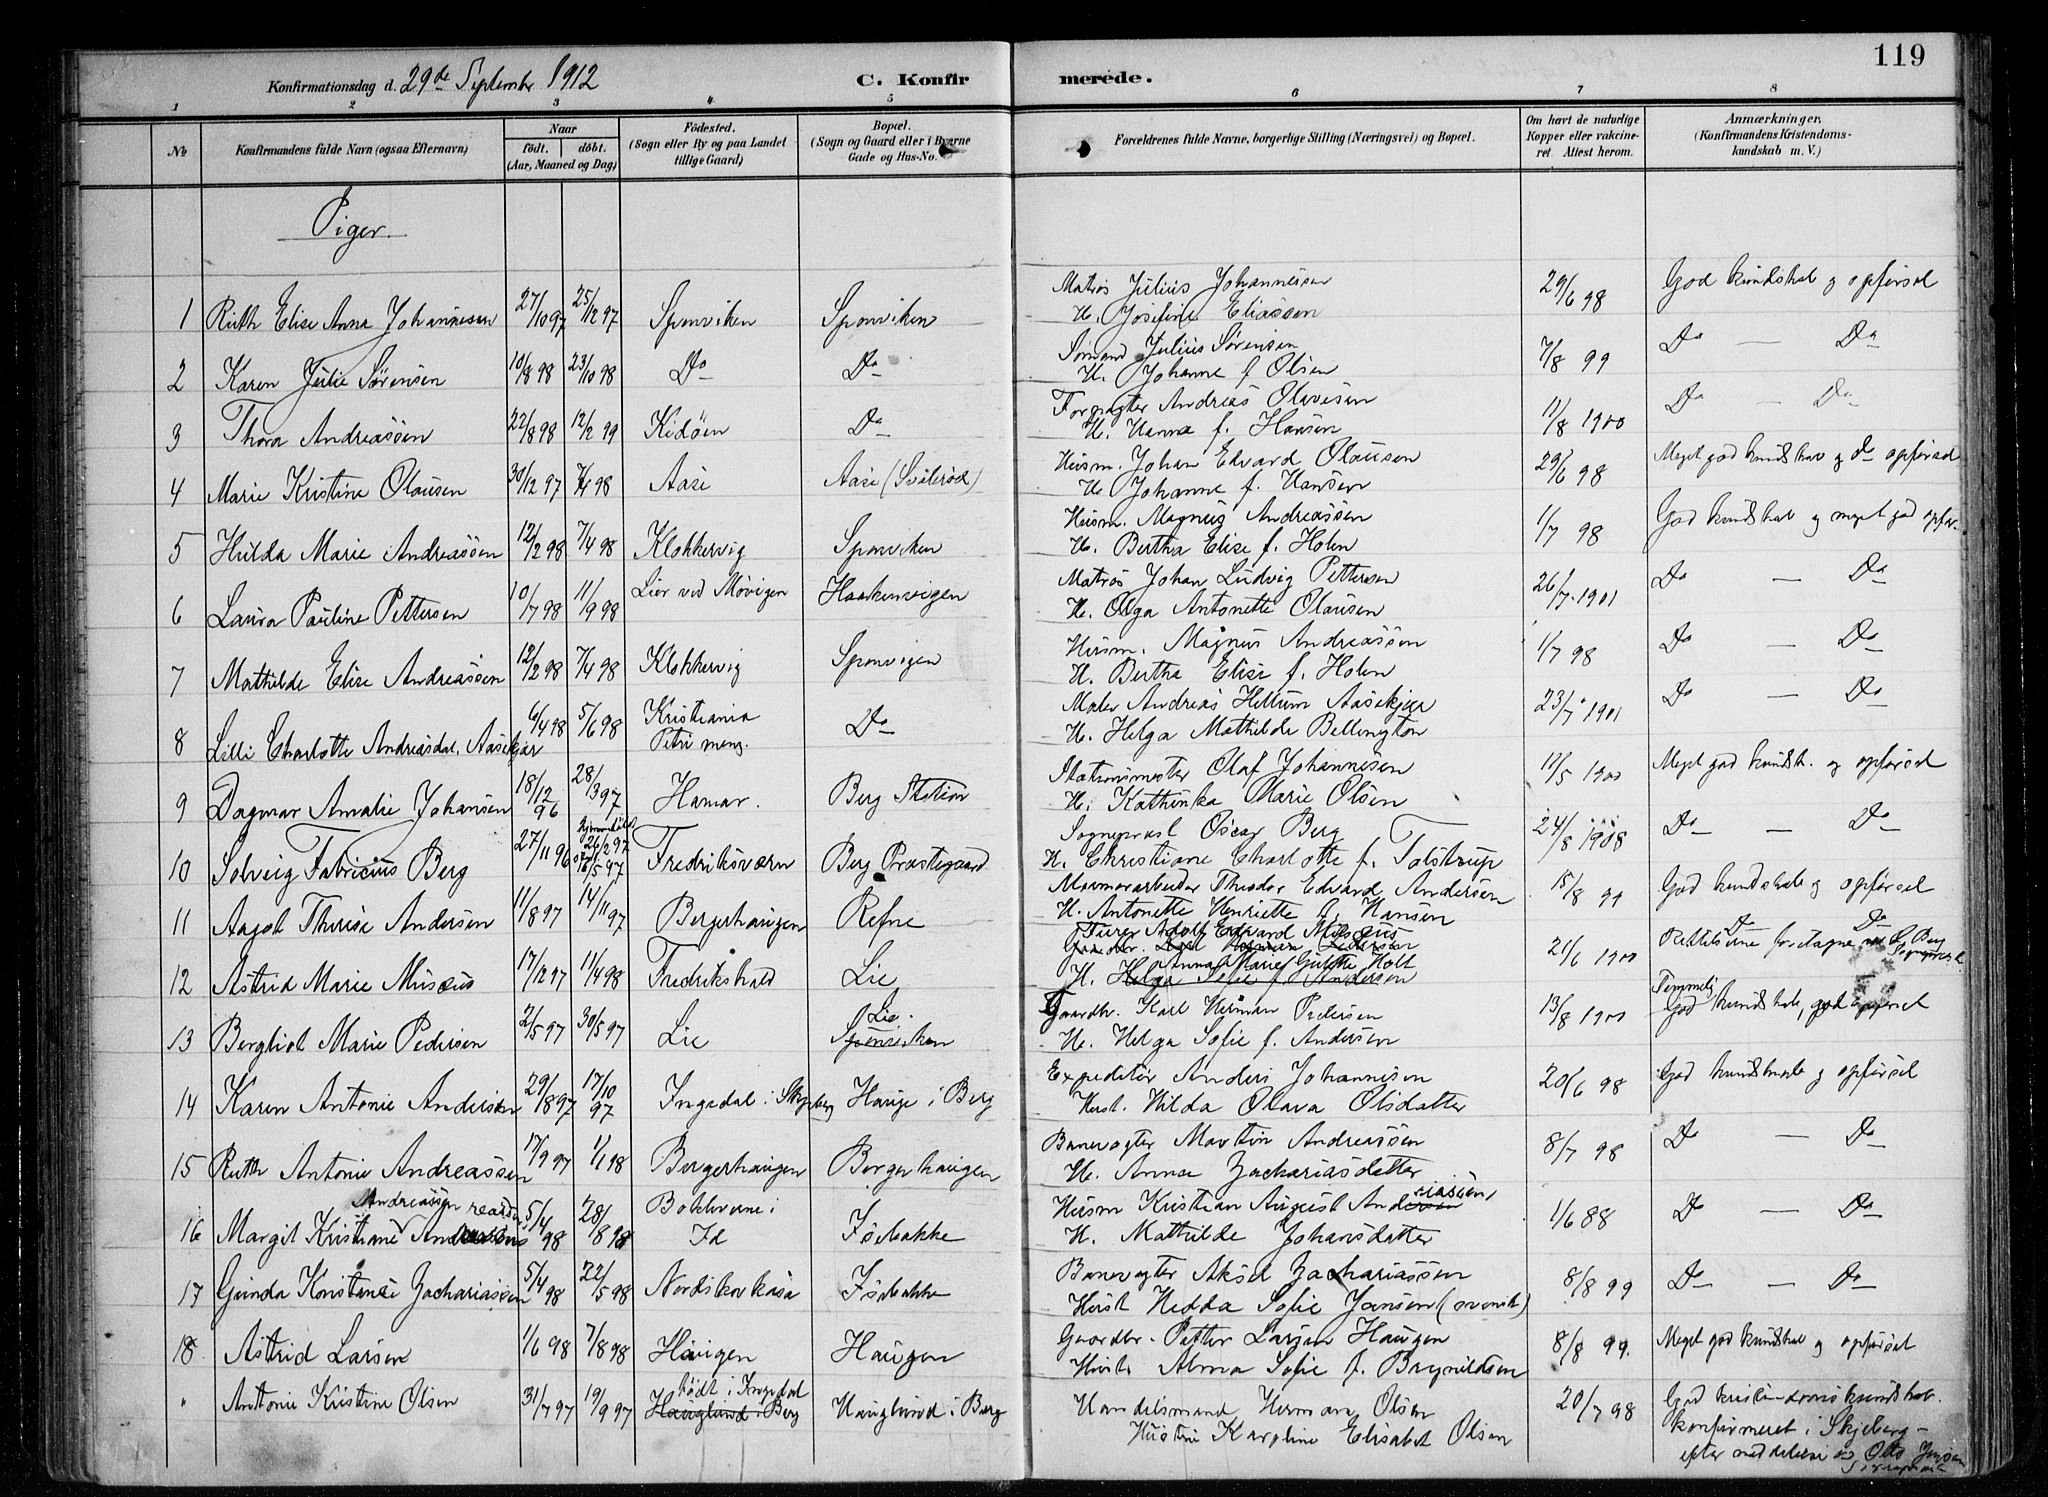 119
Konfirmationsdag d. 29de September 1912 C. Konfirmerede.
1 2 3 4 5 6 7 8
No
Konfirmandens fulde Navn (ogsaa Efternavn)
Naar
født. døbt.
(Aar, Maaned og Dag)
Fødested.
(Sogn eller By og paa Landet tillige Gaard)
Bopæl.
(Sogn og Gaard eller i Byerne Gade og Hus-No.)
Forældrenes fulde Navne, borgerlige Stilling (Næringsvei) og Bopæl.
Om havt de naturlige Kopper eller vakcineret. Attest herom.
Anmærkninger.
(Konfirmandens Kristendomskundskab m. V.)
Piger.
1 Ruth Elise Anna Johannesen 27/10 97 25/12 97 Sponviken Sponviken Matros Julius Johannesen 29/6 98 God kundskab og opførsel
H. Josefine Eliassen
2 Karen Julie Sørensen 10/8 98 23/10 98 Do Do Sømand Julius Sørensen 7/8 99 Do — Do
H. Johanne f. Olsen
3 Thora Andreassen 22/8 98 12/2 99 Kidöen Do Forpagter Andreas Olavesen 11/8 1900 Do — Do
H. Hanna f. Hansen
4 Marie Kristine Olausen 30/12 97 7/4 98 Aase Aase (Svalerød) Husm. Johan Edvard Olausen 29/6 98 Meget god kundskab og do opførsel
H. Johanne f. Hansen
5 Hulda Marie Andreassen 12/2 98 7/4 98 Klokkervig Sponviken Husm. Magnus Andreassen 1/7 98 God kundskab og meget god opfør.
H. Bertha Elise f. Holen
6 Laura Pauline Pettersen 10/7 98 11/9 98 Lier ved Movigen Haakenvigen Matros Johan Ludvig Pettersen 26/7 1901 Do — Do
H. Olga Antonette Olausen
7 Mathilde Elise Andreassen 12/2 98 7/4 98 Klokkervig Sponvigen Husm. Magnus Andreassen 1/7 98 Do — Do
H. Bertha Elise f. Holen
8 Lilli Charlotte Andreasdal. Aasekjær 6/4 98 5/6 98 Kristiania Petri meng. Do Maler Andreas Hellum Aasekjær 23/7 1901 Do — Do
H. Helga Mathilde Bellington
9 Dagmar Amalie Johansen 18/12 96 28/3 97 Hamar. Berg Station Stationsmester Olaf Johannesen 10/5 1900 Meget god kundsk. og opførsel
H. Kathinka Marie Olsen
10 Solveig Fabricius Berg 27/11 96 26/2 97 16/5 97 Fredriksværn Berg Præstegaard Sogneprest Oscar Berg 24/8 1908 Do — Do
H. Christiane Charlotte f. Tolstrup
11 Aagot Therese Andersen 11/8 97 14/11 97 Bergerhaugen Refne Marmorarbeider Theodor Edvard Andersen 15/8 99 God kundskab og opførsel
H. Antonette Henriette f. Hansen
12 Astrid Marie Musæus 17/12 97 11/4 98 Fredrikshald Lie Adolf Edvard Musæus 21/6 1900 Do Do
Gaardbr. Karl Herman Pedersen
Anna Marie Hott
H. Helga Sofie f. Andersen
Rettelserne foretagne ved O. Berg Sogneprest
13 Bergliot Marie Pedersen 2/5 97 30/5 97 Lie Lie. Sponviken Gaardbr. Karl Herman Pedersen 13/8 1900 Temmelig God kundskab, god opførsel
H. Helga Sofie f. Andersen
14 Karen Antonie Andersen 29/8 97 17/10 97 Ingedal i Skjeberg Hauge i Berg Expeditør Anders Johannesen 20/6 98 God kundskab og opførsel
Hust. Hilda Olava Olsdatter
15 Ruth Antonie Andreassen 17/9 97 1/1 98 Bergerhaugen Bergerhaugen Banevogter Martin Andreassen 8/7 98 Do — Do
H. Anna Zachariasdatter
Andreassen
16 Margit Kristiane 5/4 98 28/8 98 Bakkerne i Id Isebakke Husm Kristian August Andreassen 1/6 88 Do — Do
H. Mathilde Johansdatter
17 Gunda Konstanse Zachariassen 5/4 98 22/5 98 Nordskovkasa Isebakke Banevogter Aksel Zachariassen 8/8 99 Do — Do
Hust Hedda Sofie Jansen (svensk)
18 Astrid Larsen 1/6 98 7/8 98 Haugen Haugen Gaardbr. Petter Larsen Haugen 8/8 99. Meget god kundskab og opførsel
Hust Alma Sofie f. Brynildsen
" Antonie Kristine Olsen 31/7 97 19/9 97 født i Ingedal Hauglund i Berg Hauglund i Berg Handelsmand Herman Olsen 20/7 98 God kristendomskundskab.
Hustru Karoline Elisabet Olsen konfirmeret i Skjeberg –
efter meddelelse av Otto Jensen
Sogneprest